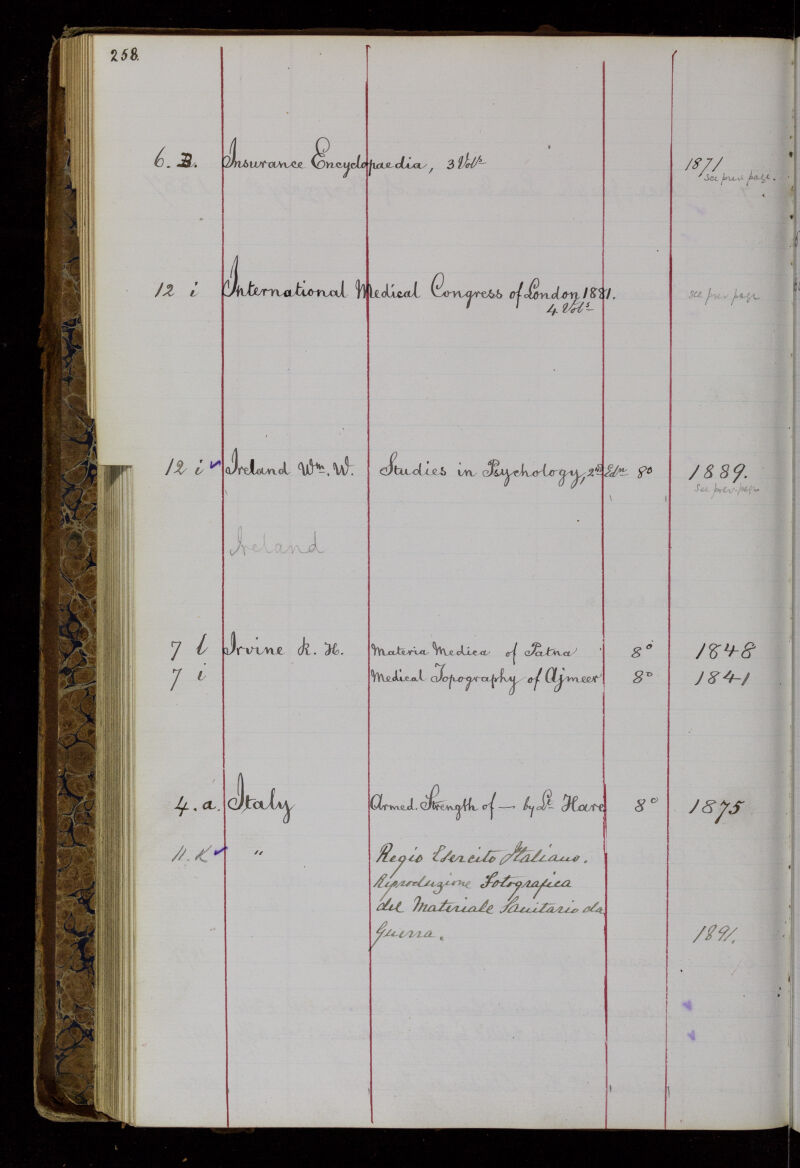 258.
6. B. Insurance Encyclopaedia, 3 Vols 1871
see prev page.
12 i International Medical Congress of London 1881. see prev page
4 Vols
12 i Ireland Wm. W. Studies in Psychology, 2nd Edn 8o 1889.
See prev. page
Ireland
7 l Irvine R. H. Materia Medica of Patna 8o 1848
7 i Medical Topography of Ajmeer 8o 1841
4. a. Italy Armed Strength of — by Lt Hare 8o 1875
11. K " Regio Esercito Italiano.
Riproduzione Fotografica
del Materiale Sanitario da
Guerra. 1891.